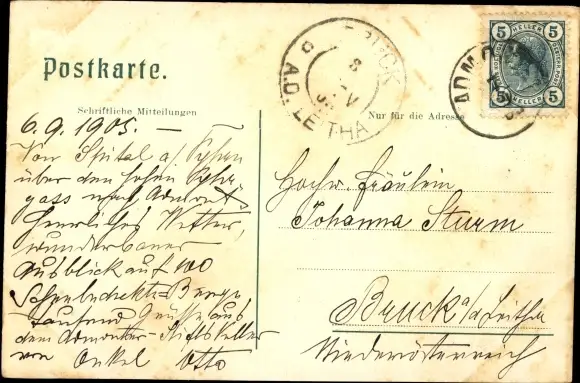 Postkarte.
Schriftliche Mitteilungen
Nur für die Adresse
6.9.1905. —
Von Spital a/. Pyhrn
über den hohen Pyhrn
nach Admont.
Herrliches Wetter,
wunderbarer
Ausblick auf 100
Schneebedeckte Berge
Tausend Grüsse aus
dem Admonter Stiftskeller
von Onkel Otto
Hochw. Fräulein
Johanna Sturm
Bruck a/d Leitha
Niederösterreich
BRUCK
A.D. LEITHA
ADMONT
5 HELLER 5
5 HELLER 5